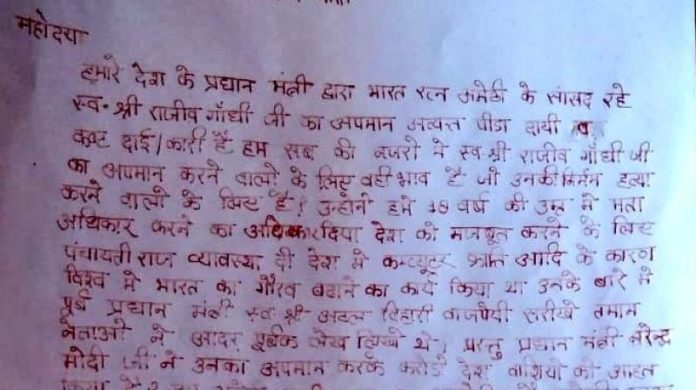 महोदया
हमारे देश के प्रधान मंत्री द्वारा भारत रत्न अमेठी के सांसद रहे
स्व॰ श्री राजीव गाँधी जी का अपमान अत्यन्त पीडा दायी व
कष्ट दाई/कारी है हम सब की नजरो मे स्व श्री राजीव गाँधी जी
का अपमान करने वालो के लिए वही भाव है जो उनकी निर्मम हत्या
करने वालो के लिए है। उन्होने हमे 18 वर्ष की उम्र मे मता
अधिकार करने का अधिकार दिया देश को मजबूत करने के लिए
पंचायती राज व्यावस्था दी देश मे कम्प्यूटर क्रान्ति आदि के कारण
विश्व मे भारत का गौरव बढाने का कार्य किया था उनके बारे मे
पूर्व प्रधान मंत्री स्व श्री अटल बिहारी वाजपेयी सरीखे तमाम
नेताओ ने आदर पूर्वक लेख लिखे थे। परन्तु प्रधान मंत्री नरेन्द्र
मोदी जी ने उनका अपमान करके करोडो देश वाशियो को आहत
किया है